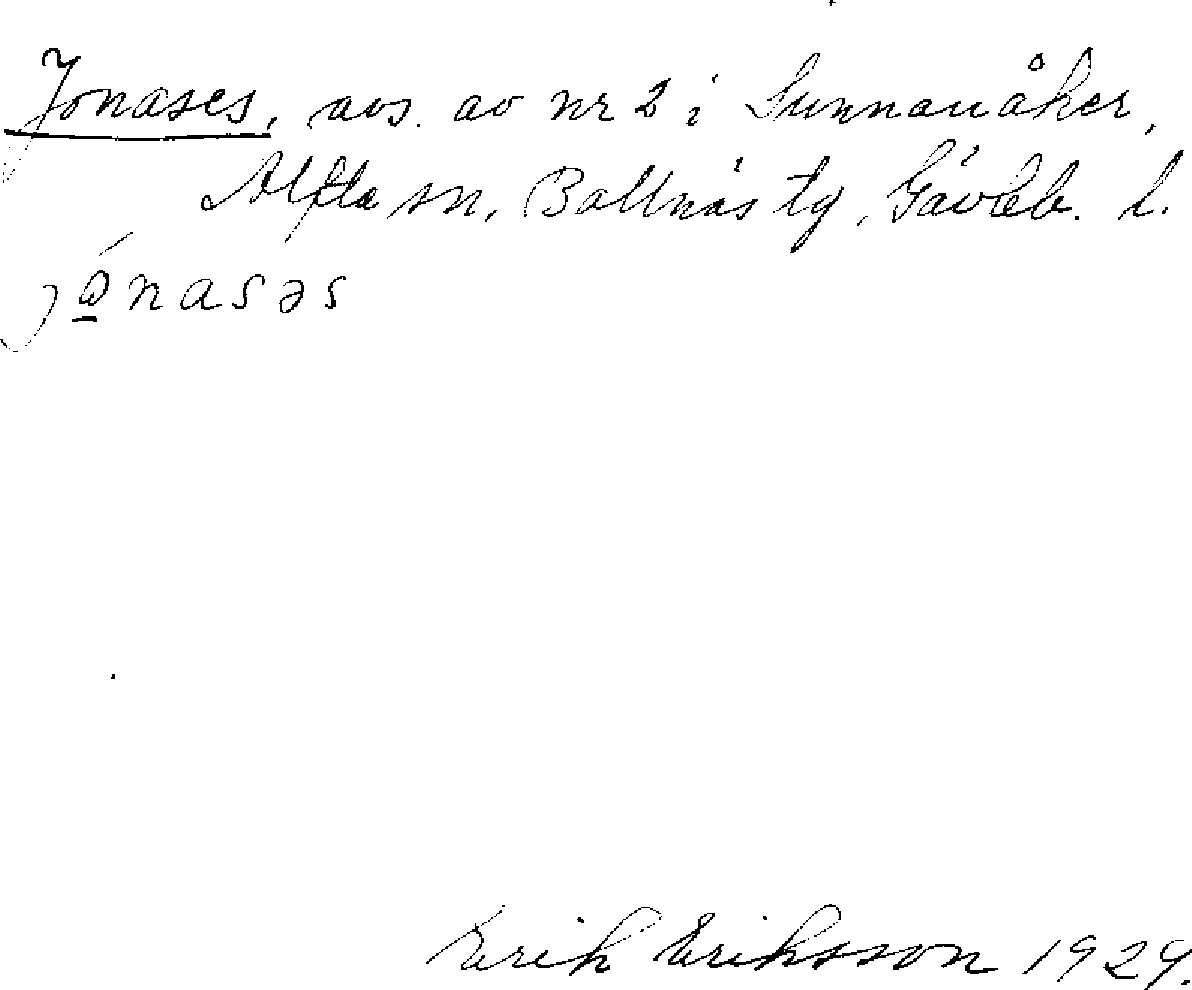 Jonases, avs. av nr 2 i Sunnanåker,
Alfta sn, Bollnäs tg, Gävleb. l.
jó̱nasəs
Erik Eriksson 1929.